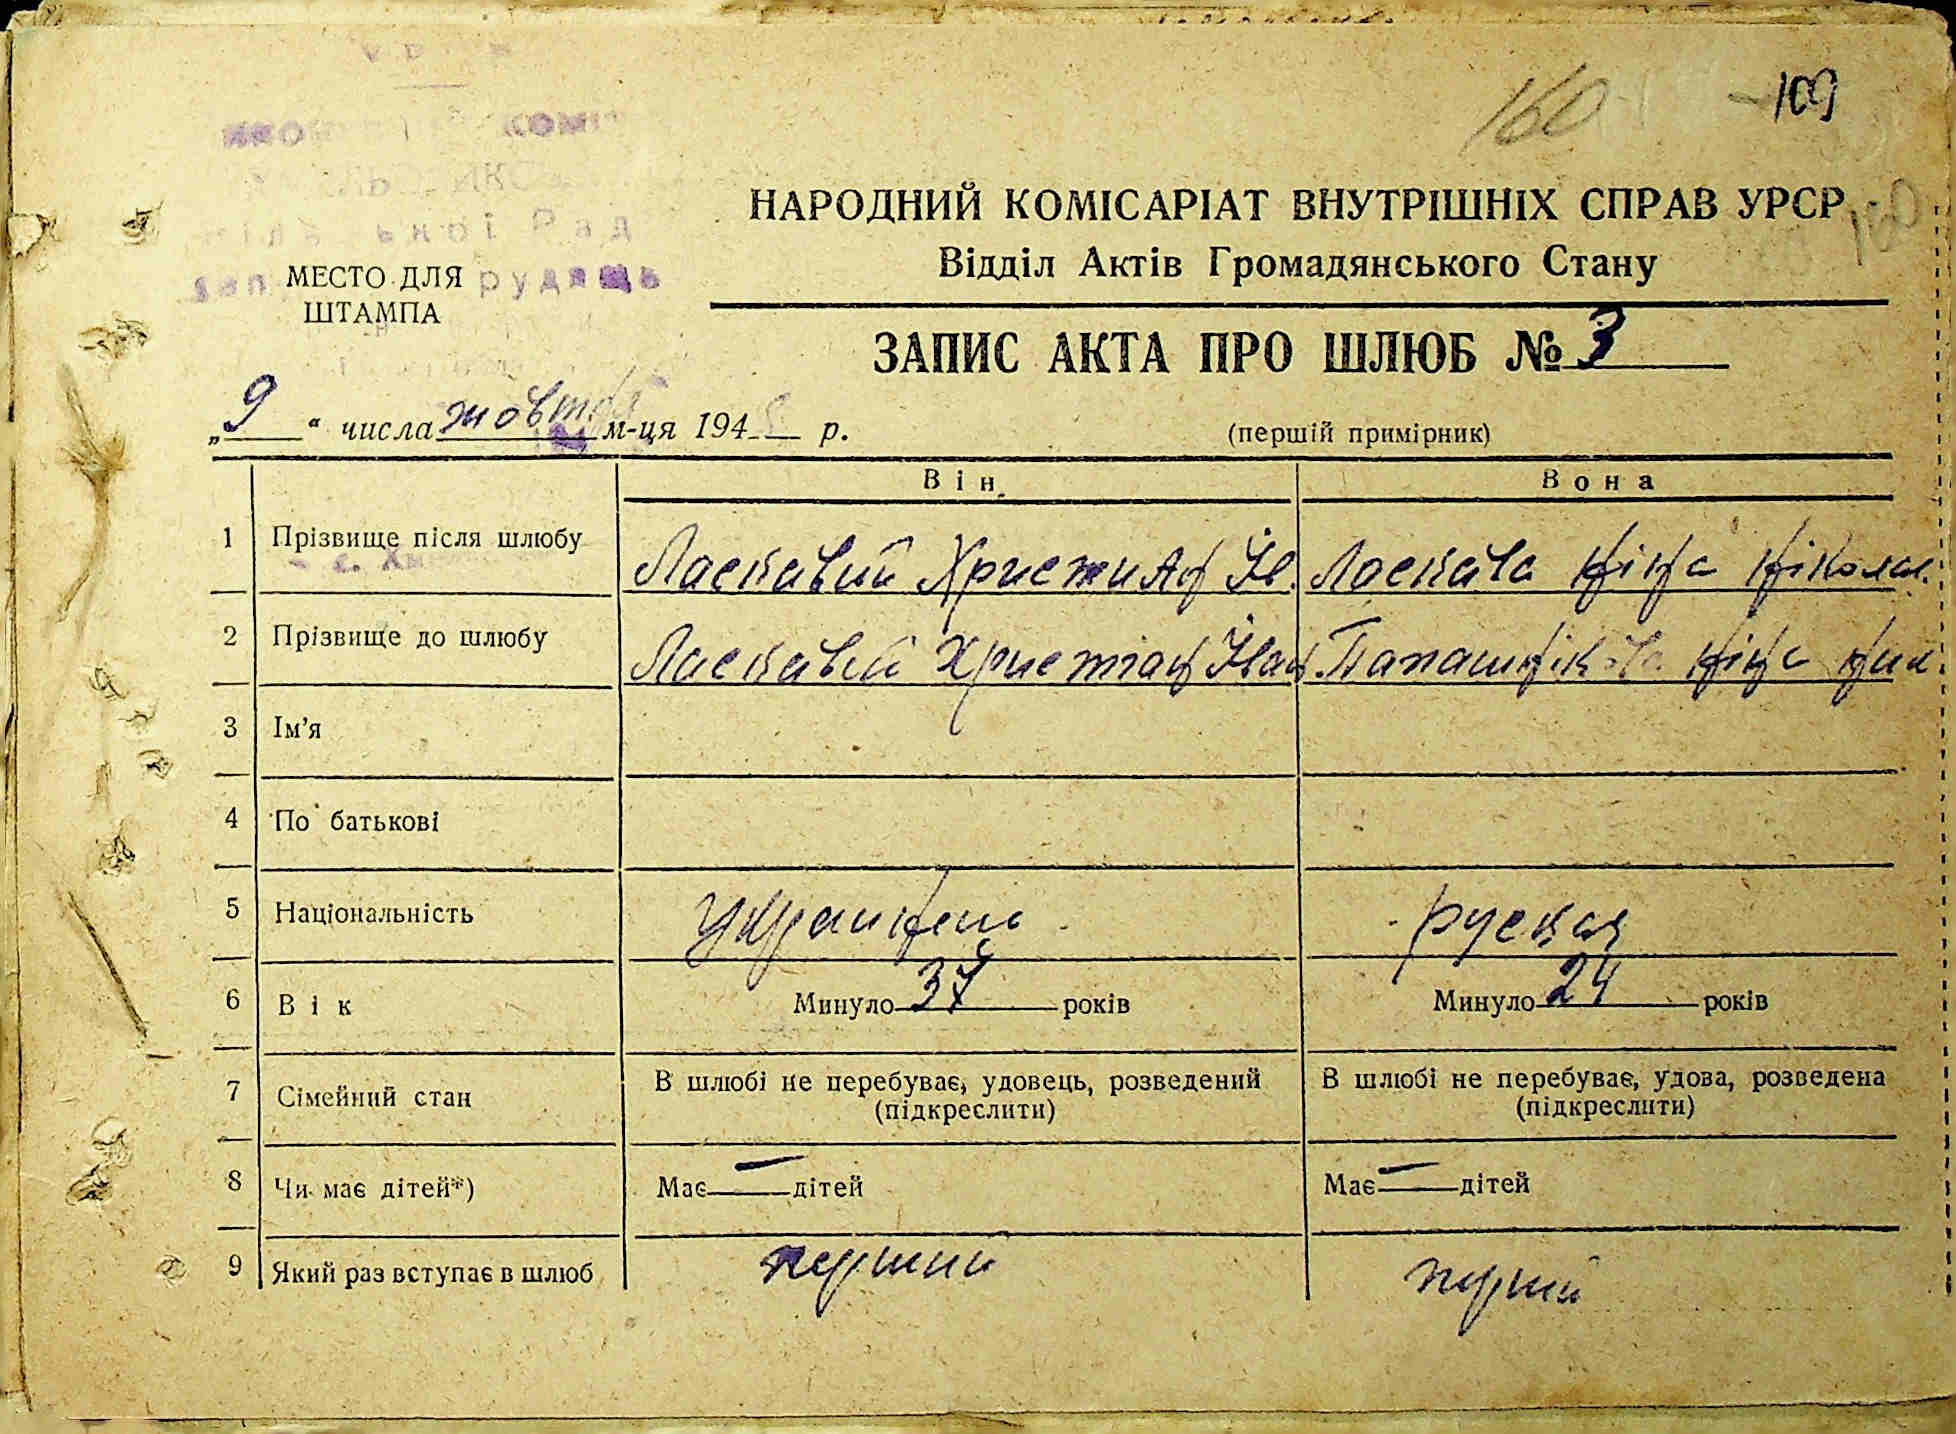 160 109
НАРОДНИЙ КОМІСАРІАТ ВНУТРІШНІХ СПРАВ УРСР
Відділ Актів Громадянського Стану
МЕСТО ДЛЯ
ШТАМПА
ЗАПИС АКТА ПРО ШЛЮБ № 3
„9“ числа жовтня м-ця 194 р.
(першій примірник)
Він Вона
1 Прізвище після шлюбу Ласкавий Християн Ів. Ласкава Ніна Ніколал.
2 Прізвище до шлюбу Ласкавий Христіан Іван Папашнікова Ніна Ник.
3 Ім'я
4 По батькові
5 Національність Украинець руская
6 Вік Минуло 37 років Минуло 24 років
7 Сімейний стан В шлюбі не перебуває, удовець, розведений В шлюбі не перебуває, удова, розведена
(підкреслити) (підкреслити)
8 Чи має дітей*) Має — дітей Має — дітей
9 Який раз вступає в шлюб перший перий